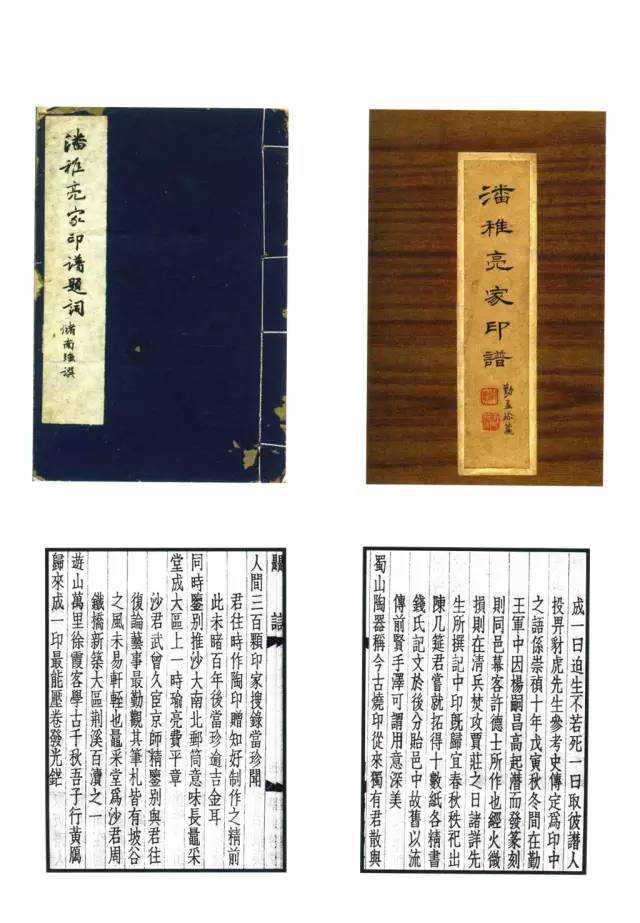 潘稚亮家印譜題詞
儲南強譔
潘稚亮家印譜
勤孟珍藏
題詞
人間三百顆印家搜錄當珍聞
君往時作陶印贈知好制作之精前
此未睹百年後當珍逾吉金耳
同時鑒別推沙大南北郵筒意味長鼂采
堂成大匾上一時瑜亮費平章
沙君武曾久宦京師精鑒別與君往
復論藝事最勤觀其筆札皆有坡谷
之風未易軒輊也鼂采堂爲沙君周
鐵橋新築大匾荆溪百瀆之一
遊山萬里徐霞客學古千秋吾子行黃厲
歸來成一印最能壓卷發光鋩
成一日迫生不若死一日取彼譖人
投畀豺虎先生參考史傳定爲印中
之語係崇禎十年戊寅秋冬間在勤
王軍中因楊嗣昌高起潛而發篆刻
則同邑幕客許德士所作也經火微
損則在清兵焚攻賈莊之日諸詳先
生所撰記中印既歸宜春秋秩祀出
陳几筵君嘗就拓得十數紙各精書
錢氏記文於後分貽邑中故舊以流
傳前賢手澤可謂用意深美
蜀山陶器稱今古燒印從來獨有君散與